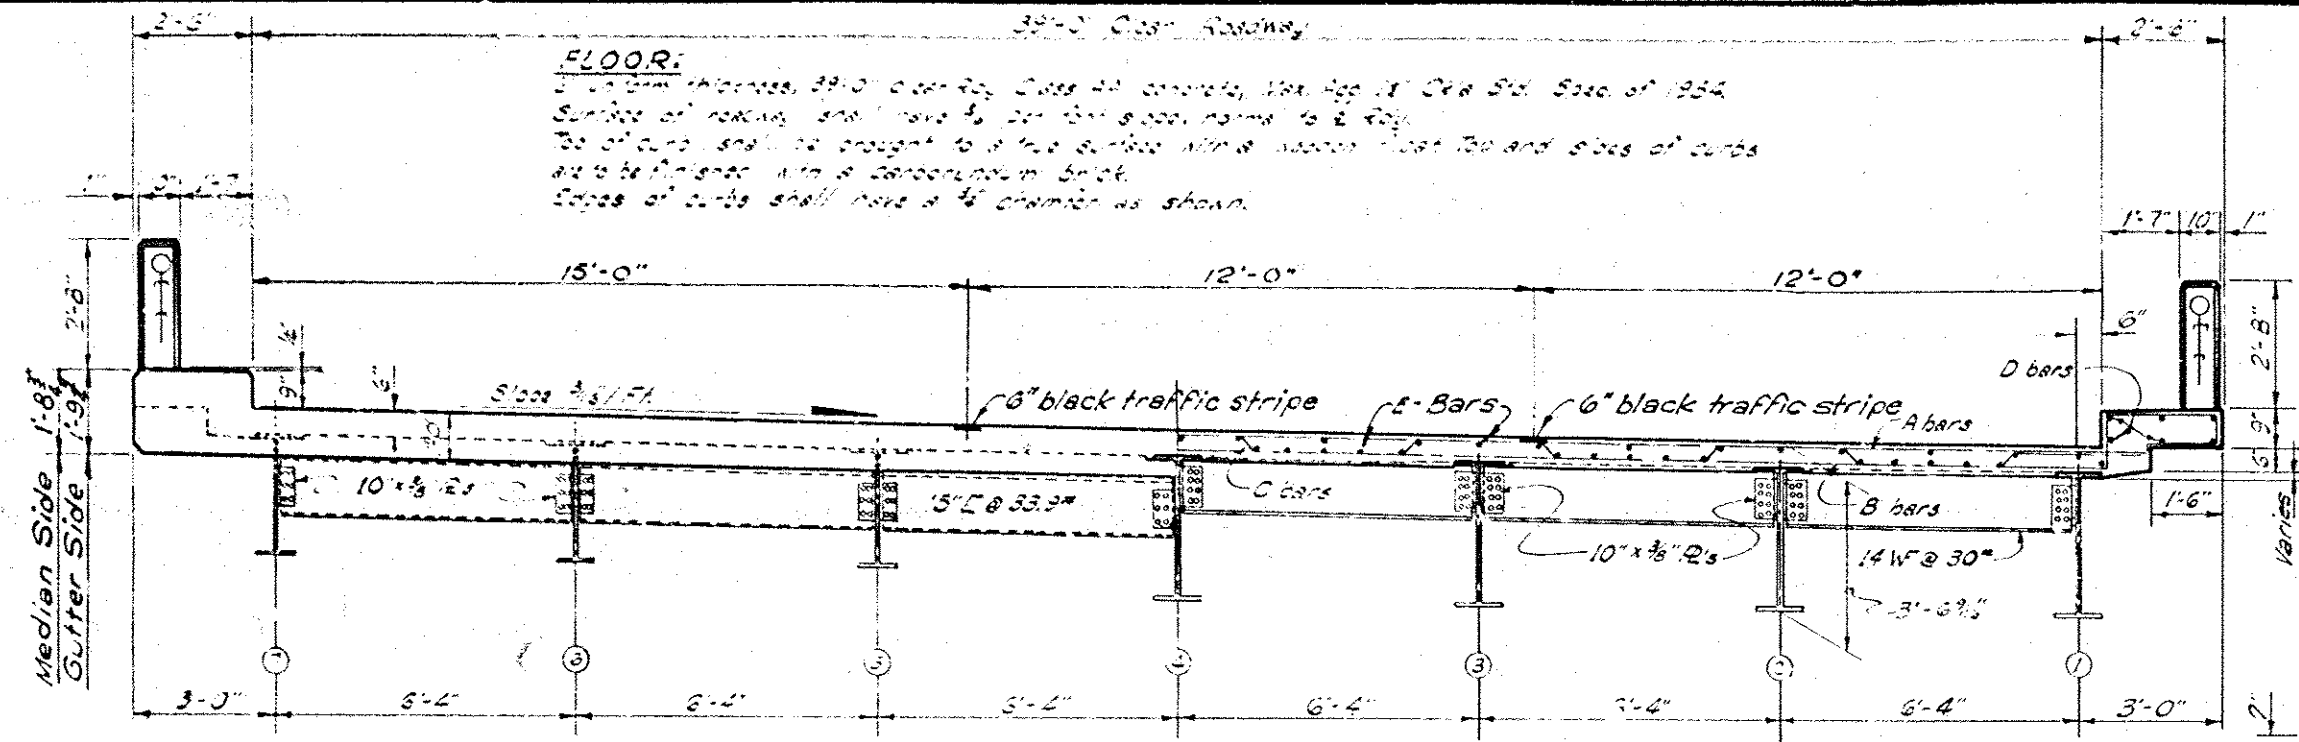 2'-6" 39'-0" Clear Roadway 2'-6"
FLOOR:
uniform thickness, 39'-0" clear Rdy. Class AA concrete, Max. Agg. Okla Std. Spec. of 1954.
Surface of roadway shall have per foot slope, normal to ℄ Rdy.
Top of curb shall be brought to a true surface with a wooden float. Top and sides of curbs
are to be finished with a carborundum brick.
Edges of curbs shall have a chamfer as shown.
1" 10" 1'-7"
1'-7" 10" 1"
15'-0" 12'-0" 12'-0"
2'-8"
9"
6"
6"
2'-8"
D bars
Slope 3/16"/Ft.
6" black traffic stripe
E-Bars
6" black traffic stripe
A bars
9"
6"
Median Side 1'-8¾"
Gutter Side 1'-9¼"
10" x ⅜ ℙs
15" [ @ 33.9#
C bars
10" x ⅜" ℙ's
B bars
14 WF @ 30#
3'-6 9/16"
1'-6"
Varies
7 6 5 4 3 2 1
3'-0" 6'-4" 6'-4" 6'-4" 6'-4" 6'-4" 6'-4" 3'-0"
2"